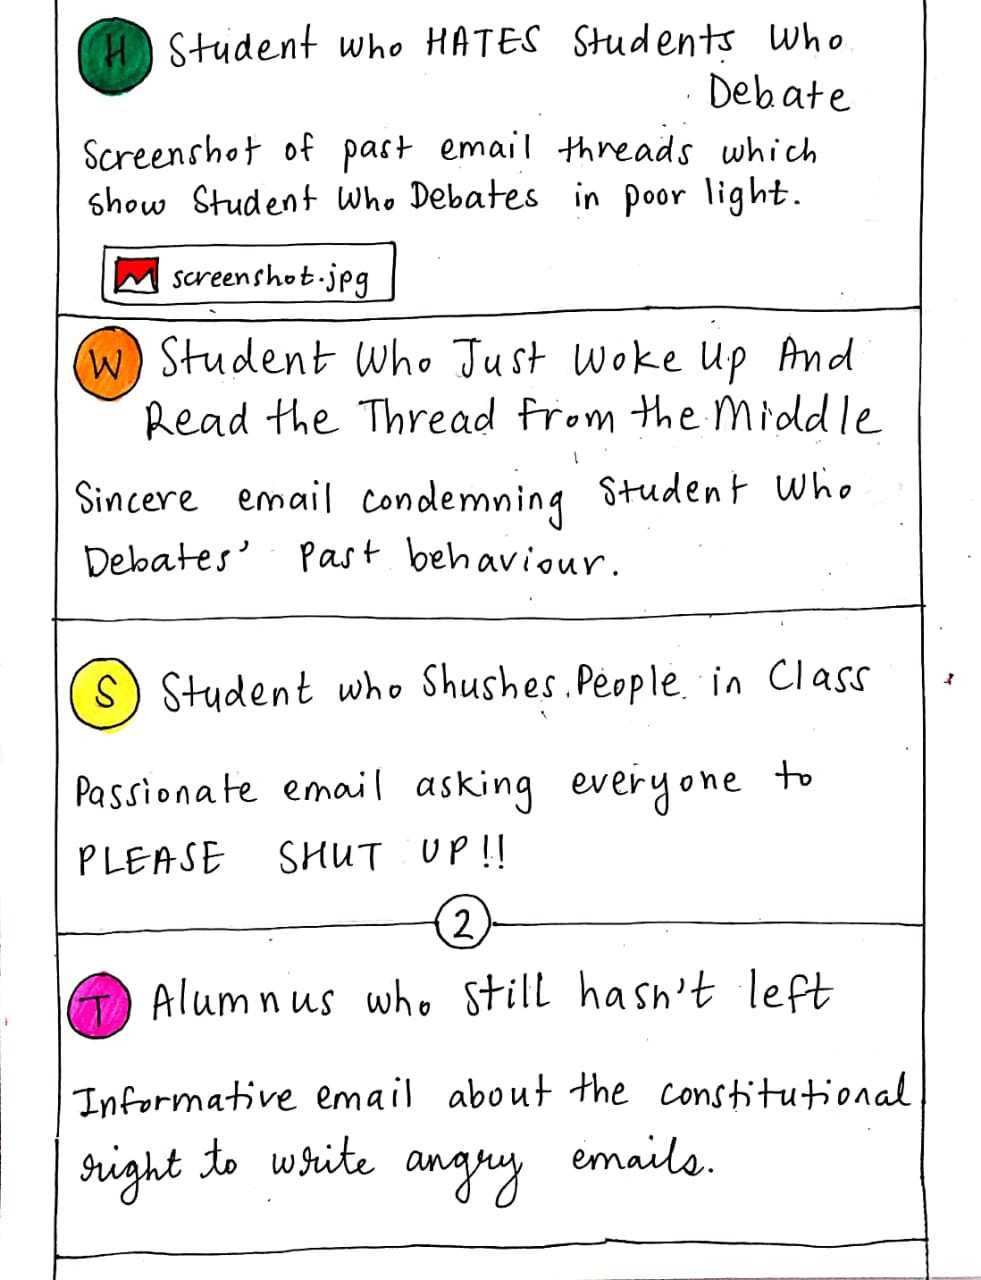 H Student who HATES Students Who
Debate
Screenshot of past email threads which
show Student Who Debates in poor light.
screenshot.jpg
W Student Who Just Woke Up And
Read the Thread from the Middle
Sincere email condemning Student Who
Debates' Past behaviour.
S Student who Shushes People in Class
Passionate email asking everyone to
PLEASE SHUT UP!!
2
T Alumnus who still hasn't left
Informative email about the constitutional
right to write angry emails.